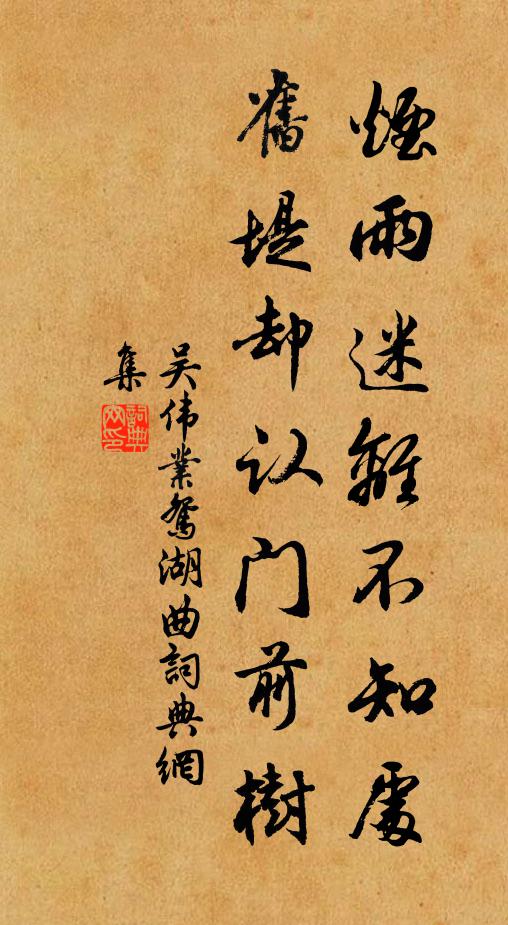 煙雨迷離不知處
舊堤却认门前樹
吴伟業鴛湖曲詞典網
集
詞典網印